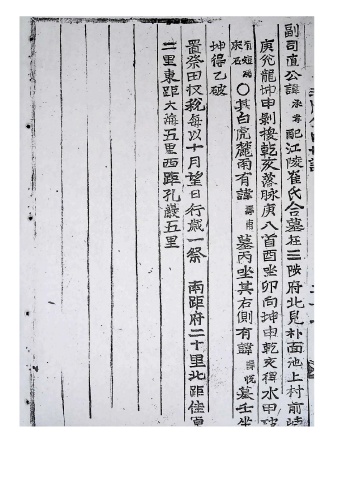 副司直公諱 配江陵崔氏合墓在三陟府北見朴面池上村前
庚兊龍坤申剝換乾亥落脉庚入首酉坐卯向坤申乾亥得水甲破
有短碣床石〇其白虎麓雨有諱 墓丙坐其右側有諱 墓壬坐
坤得乙破
置祭田收稅每以十月望日行歲一祭 南距府二十里北距
二里東距大海五里西距孔巖五里